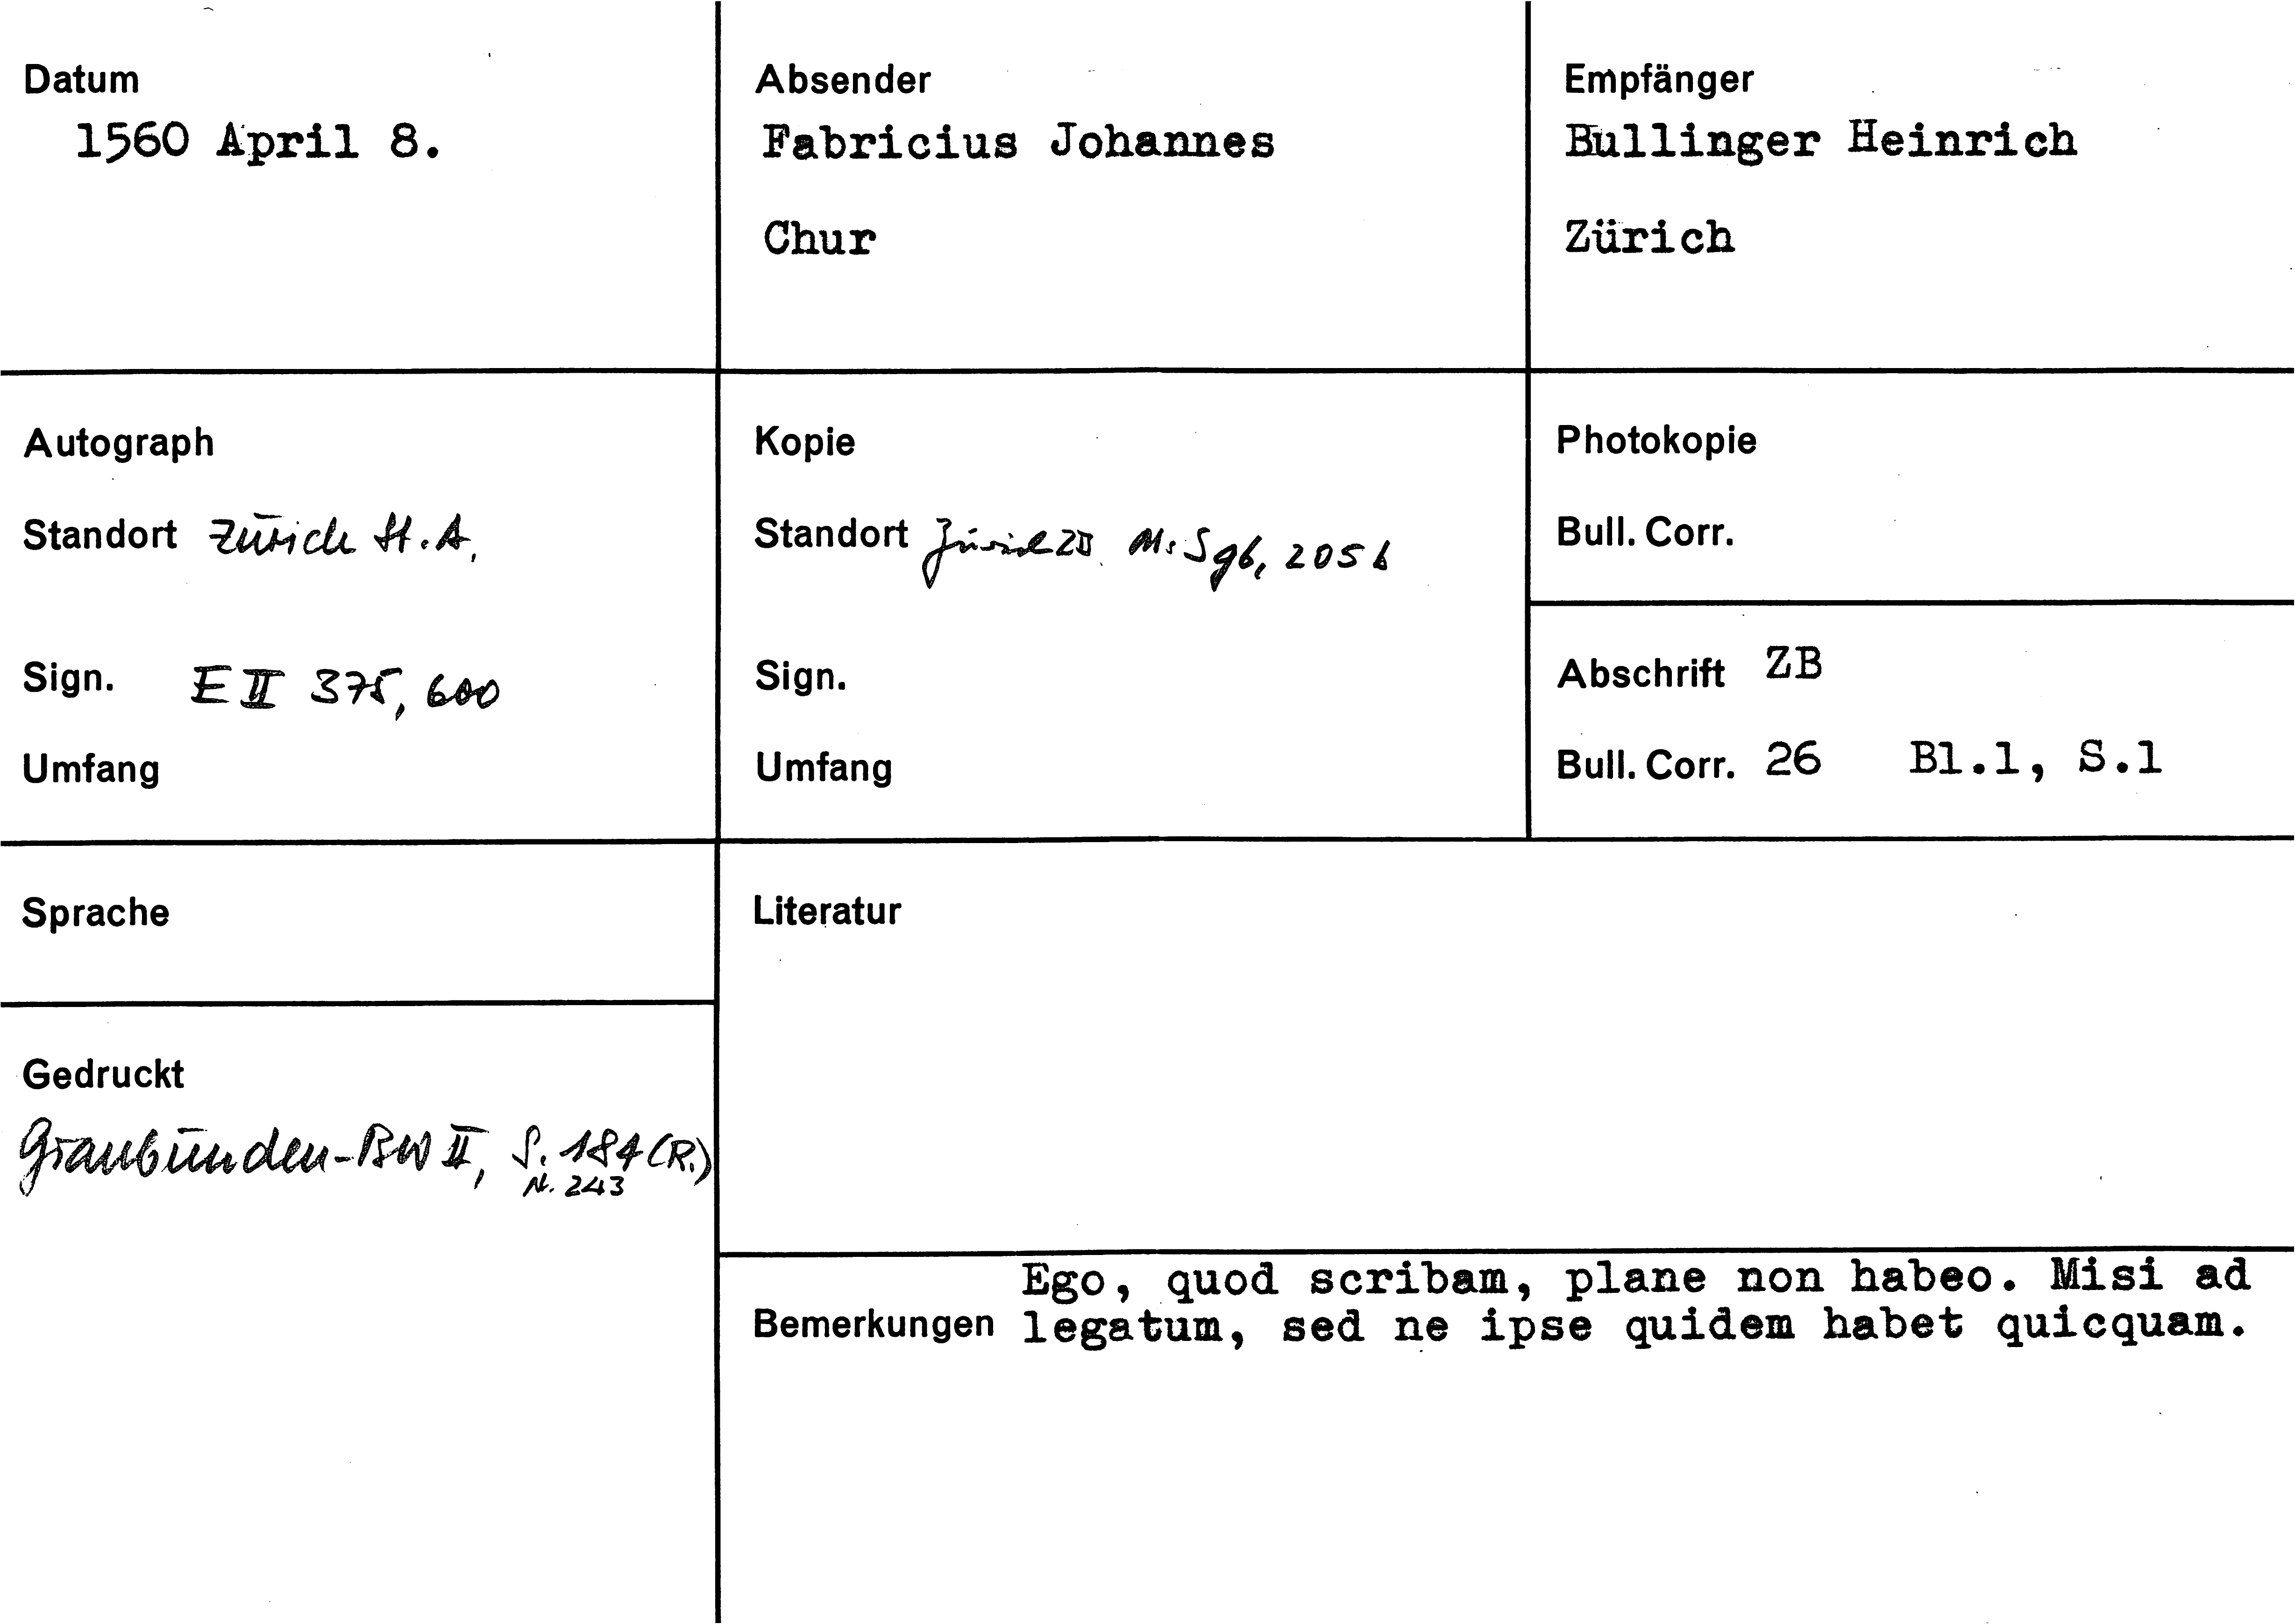 Datum
1560 April 8.
Absender
Fabricius Johannes
Chur
Empfänger
Bullinger Heinrich
Zürich
Autograph
Standort Zürich St.A.
Sign. E II 375, 600
Umfang
Kopie
Standort Zürich ZB Ms S 96, 205 b
Sign.
Umfang
Photokopie
Bull. Corr.
Abschrift ZB
Bull. Corr. 26 Bl.1, S.1
Sprache
Literatur
Gedruckt
Graubünden-BW II, S. 184 (R.)
Nr. 243
Bemerkungen
Ego, quod scribam, plane non habeo. Misi ad
legatum, sed ne ipse quidem habet quicquam.